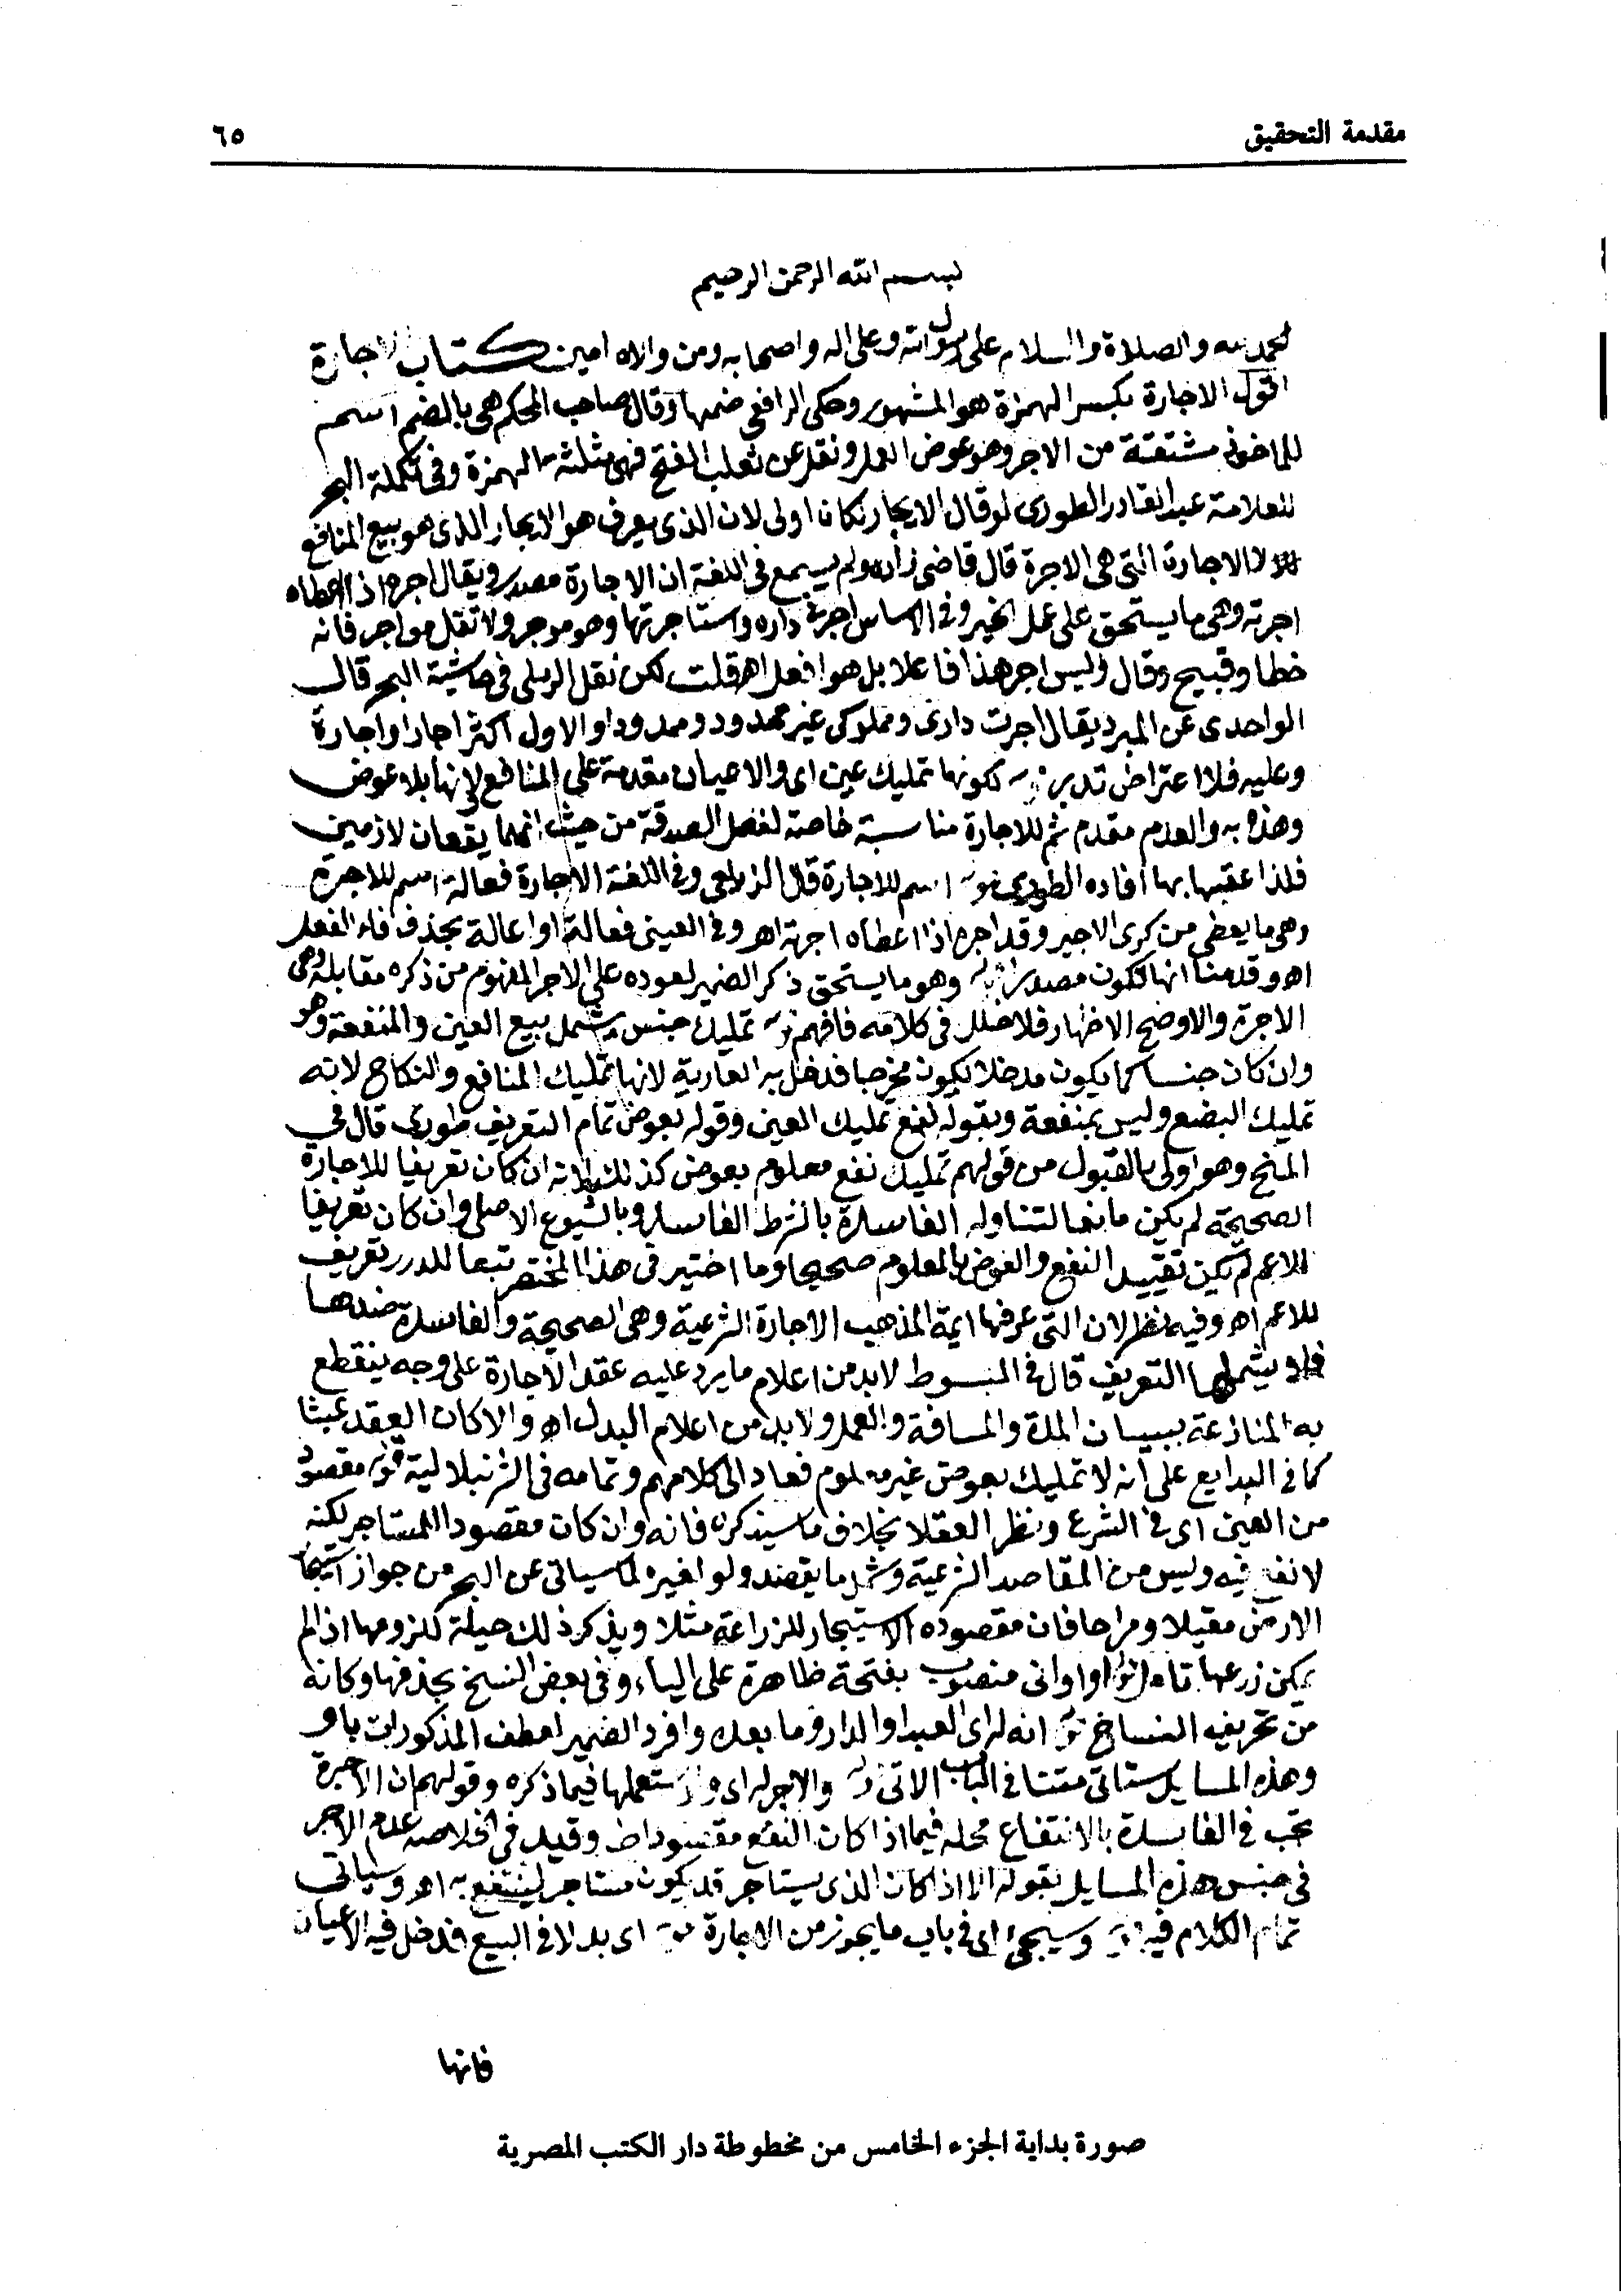 مقدمة التحقيق ٦٥
بسم الله الرحمن الرحيم
الحمد لله والصلاة والسلام على رسول الله وعلى اله واصحابه ومن والاه امين كتاب الاجارة
اقول الاجارة بكسر الهمزة هو المشهور وحكى الرافعي ضمها وقال صاحب المحكم هي بالضم اسم
للماخوذ مشتقة من الاجر وهو عوض العمل ونقل عن ثعلب الفتح فهي مثلثة الهمزة وفي تكملة البحر
للعلامة عبد القادر الطوري لو قال الايجار لكان اولى لان الذي يعرف هو الايجار الذي هو بيع المنافع
لا الاجارة التي هي الاجرة قال قاضي زاده ولم يسمع في اللغة ان الاجارة مصدر ويقال اجره اذا اعطاه
اجرته وهي ما يستحق على عمل الخير وفي الاساس اجرني داره واستاجرتها وهو موجر ولا تقل مواجر فانه
خطا وقبيح وقال وليس اجر هذا فاعلا بل هو افعل اهـ قلت لكن نقل الرملي في حاشية البحر قال
الواحدي عن المبرد يقال اجرت داري ومملوكي غير ممدود وممدودا والاول اكثر اجارا واجارة
وعليه فلا اعتراض تدبر لكونها تمليك عين اى والاعيان مقدمة على المنافع لانها بلا عوض
وهذه به والعدم مقدم ثم للاجارة مناسبة خاصة لفصل الصدقة من حيث انهما يقعان لازمين
فلذا عقبها بها افاده الطوري قوله اسم للاجارة قال الزيلعي وفي اللغة الاجارة فعالة اسم للاجرة
وهي ما يعطى من كرى الاجير وقد اجره اذا اعطاه اجرته اهـ وفي العيني فعالة او اعالة بحذف فاء الفعل
اهـ وقدمنا انها تكون مصدرا قوله وهو ما يستحق ذكر الضمير لعوده على الاجر المفهوم من ذكره مقابله وهي
الاجرة والاوضح الاظهار فلا خلل في كلامه فافهم قوله تمليك جنس يشمل بيع العين والمنفعة وهو
وان كان جنسا كما يكون مدخلا يكون مخرجا فدخل به العارية لانها تمليك المنافع والنكاح لانه
تمليك البضع وليس بمنفعة وبقوله نفع تمليك العين وقوله بعوض تمام التعريف طوري قال في
المنح وهو اولى بالقبول من قولهم تمليك نفع معلوم بعوض كذلك لانه ان كان تعريفا للاجارة
الصحيحة لم يكن مانعا لتناوله الفاسدة بالشرط الفاسد وبالشيوع الاصلي وان كان تعريفا
للاعم لم يكن تقييد النفع والعوض بالمعلوم صحيحا وما اختير في هذا المختصر تبعا للدرر تعريف
للاعم اهـ وفيه نظر لان التي عرفها ايمة المذهب الاجارة الشرعية وهي الصحيحة والفاسدة ضدها
فلا يشملها التعريف قال في المبسوط لابد من اعلام ما يرد عليه عقد الاجارة على وجه ينقطع
به المنازعة ببيان المدة والمسافة والعمل ولابد من اعلام البدل اهـ والا كان العقد عبثا
كما في البدايع على انه لا تمليك بعوض غير معلوم فعاد الى كلامهم وتمامه في الشرنبلالية قوله مقصود
من العين اى في الشرع ونظر العقلا بخلاف ما سيذكره فانه وان كان مقصودا للمستاجر لكنه
لا نفع فيه وليس من المقاصد الشرعية وشمل ما يقصد ولو لغيره لما سياتي عن البحر من جواز استيجار
الارض مقيلا ومراحا فان مقصوده الاستيجار للزراعة مثلا ويذكر ذلك حيلة للزومها اذا لم
يمكن زرعها تامل قوله اواواني منصوب بفتحة ظاهرة على الياء وفي بعض النسخ بحذفها وكانه
من تحريف النساخ قوله انه له اى العبد او الدار وما بعد وافرد الضمير لعطف المذكورات باو
وهذه المسايل ستاتي متنا في الباب الاتي قوله ولا اجر له اى ولو استعملها فيما ذكره وقولهم ان الاجرة
تجب في الفاسدة بالانتفاع محله فيما اذا كان النفع مقصودا ط وقيد في الخلاصه عدم الاجر
في جنس هذه المسايل بقوله الا اذا كان الذي يستاجر قد يكون مستاجر لينتفع به اهـ وسياتي
تمام الكلام فيه قوله وسيجيئ اى في باب ما يجوز من الاجارة قوله اى بدلا في البيع فدخل فيه الاعيان
فانها
صورة بداية الجزء الخامس من مخطوطة دار الكتب المصرية